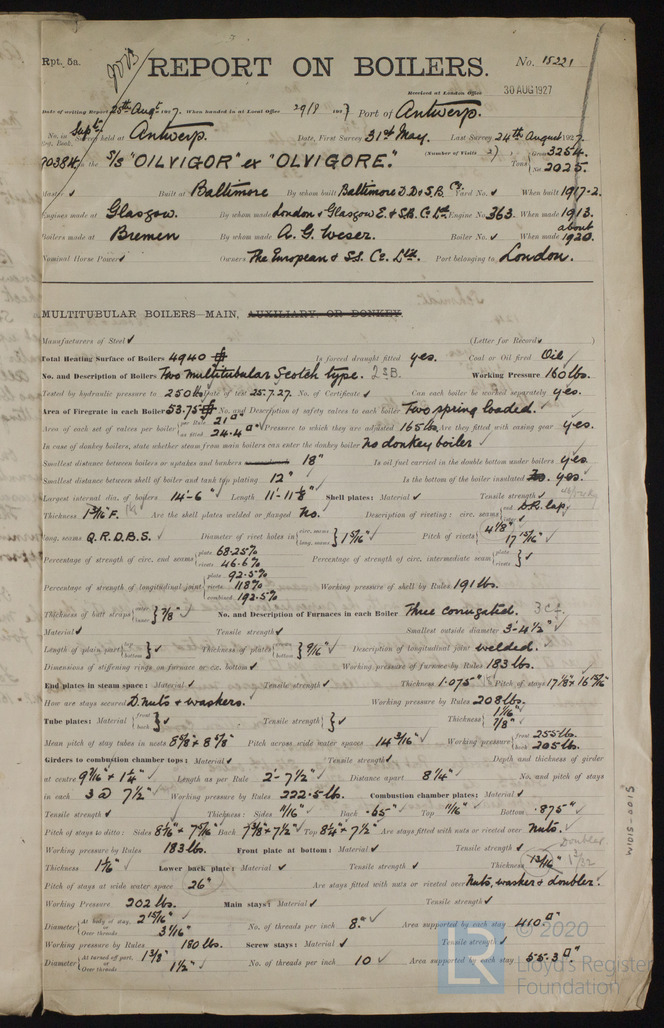 Rpt. 5a.
REPORT ON BOILERS.
No. 15221
Received at London Office 30 AUG 1927
Date of writing Report 25th Augt. 1927. When handed in at Local Office 29/8 1927 Port of Antwerp.
No. in Reg. Book. Survey held at Antwerp. Date, First Survey 31st May. Last Survey 24th August 1927.
70384 S/S "OILVIGOR" ex "OLVIGORE." (Number of Visits ) Tons Gross 3254. Net 2025.
Master ✓ Built at Baltimore By whom built Baltimore D.D & S.B. Co. Yard No. ✓ When built 1917-2.
Engines made at Glasgow. By whom made London & Glasgow E. & S.B. Co Ltd. Engine No. 363. When made 1913.
Boilers made at Bremen By whom made A. G. Weser. Boiler No. ✓ When made about 1920.
Nominal Horse Power ✓ Owners The European & S.S. Co. Ltd. Port belonging to London.
MULTITUBULAR BOILERS—MAIN, AUXILIARY, OR DONKEY.
Manufacturers of Steel ✓ (Letter for Record ✓ )
Total Heating Surface of Boilers 4940 Is forced draught fitted yes. Coal or Oil fired Oil
No. and Description of Boilers Two multitubular Scotch type. 2 S.B. Working Pressure 160 lbs.
Tested by hydraulic pressure to 250 lbs Date of test 25.7.27. No. of Certificate ✓ Can each boiler be worked separately yes.
Area of Firegrate in each Boiler 53.75 No. and Description of safety valves to each boiler Two spring loaded.
Area of each set of valves per boiler per Rule 21 □" as fitted 24.4 □" Pressure to which they are adjusted 165 lbs. Are they fitted with easing gear yes.
In case of donkey boilers, state whether steam from main boilers can enter the donkey boiler No donkey boiler
Smallest distance between boilers or uptakes and bunkers 18" Is oil fuel carried in the double bottom under boilers yes
Smallest distance between shell of boiler and tank top plating 12" Is the bottom of the boiler insulated yes.
Largest internal dia. of boilers 14'-6" Length 11'-11 1/8" Shell plates: Material ✓ Tensile strength ✓
Thickness 1 3/16" F. Are the shell plates welded or flanged No. Description of riveting: circ. seams end D.R. lap. inter ✓
long. seams Q.R.D.B.S. Diameter of rivet holes in circ. seams long. seams 1 5/16" Pitch of rivets 4 1/8" 17 15/16"
Percentage of strength of circ. end seams plate 68.25% rivets 46.6% Percentage of strength of circ. intermediate seam plate rivets ✓
Percentage of strength of longitudinal joint plate 92.5% rivets 118% combined 192.5% Working pressure of shell by Rules 191 lbs.
Thickness of butt straps outer inner 7/8" No. and Description of Furnaces in each Boiler Three corrugated. 3 C.f.
Material ✓ Tensile strength ✓ Smallest outside diameter 3'-4 1/2"
Length of plain part top bottom ✓ Thickness of plates crown bottom 9/16" Description of longitudinal joint welded.
Dimensions of stiffening rings on furnace or c.c. bottom ✓ Working pressure of furnace by Rules 183 lbs.
End plates in steam space: Material ✓ Tensile strength ✓ Thickness 1.075" Pitch of stays 17 1/8" × 16 15/16"
How are stays secured D. nuts & washers. Working pressure by Rules 208 lbs.
Tube plates: Material front back ✓ Tensile strength ✓ Thickness 1 1/16" 7/8"
Mean pitch of stay tubes in nests Pitch across wide water spaces 14 3/16" Working pressure front 255 lbs. back 205 lbs.
Girders to combustion chamber tops: Material ✓ Tensile strength ✓ Depth and thickness of girder
at centre 9 7/16" × 1 1/4" Length as per Rule 2'-7 1/2" Distance apart 8 1/4" No. and pitch of stays
in each 3 @ 7 1/2" Working pressure by Rules 222.5 lbs. Combustion chamber plates: Material ✓
Tensile strength ✓ Thickness: Sides 11/16" Back .65" Top 11/16" Bottom .875"
Pitch of stays to ditto: Sides 8 7/16" × 7 5/16" Back 7 3/8" × 7 1/2" Top 8 1/4" × 7 1/2" Are stays fitted with nuts or riveted over Nuts.
Working pressure by Rules 183 lbs. Front plate at bottom: Material ✓ Tensile strength ✓ Doubler
Thickness 1 1/16" Lower back plate: Material ✓ Tensile strength ✓ Thickness 13/16" 1 3/32
Pitch of stays at wide water space 26" Are stays fitted with nuts or riveted over Nuts, washer & doubler.
Working Pressure 202 lbs. Main stays: Material ✓ Tensile strength ✓
Diameter At body of stay, or Over threads 2 15/16" 3 1/16" No. of threads per inch 8. Area supported by each stay 410 □"
Working pressure by Rules 180 lbs. Screw stays: Material ✓ Tensile strength ✓
Diameter At turned off part, or Over threads 1 3/8" 1 1/2" No. of threads per inch 10 Area supported by each stay 55.3 □"
W1015-0015
LR
© 2020
Lloyd's Register
Foundation